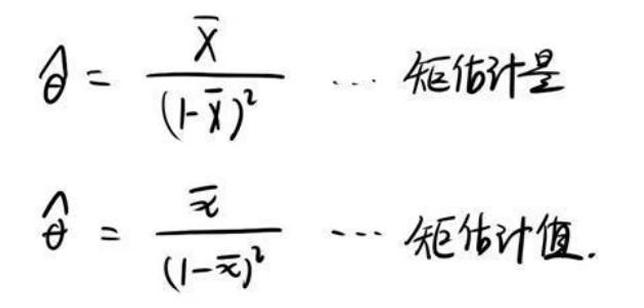 θ̂ = X̄ / (1-X̄)² ... 矩估计量
θ̂ = x̄ / (1-x̄)² ... 矩估计值.